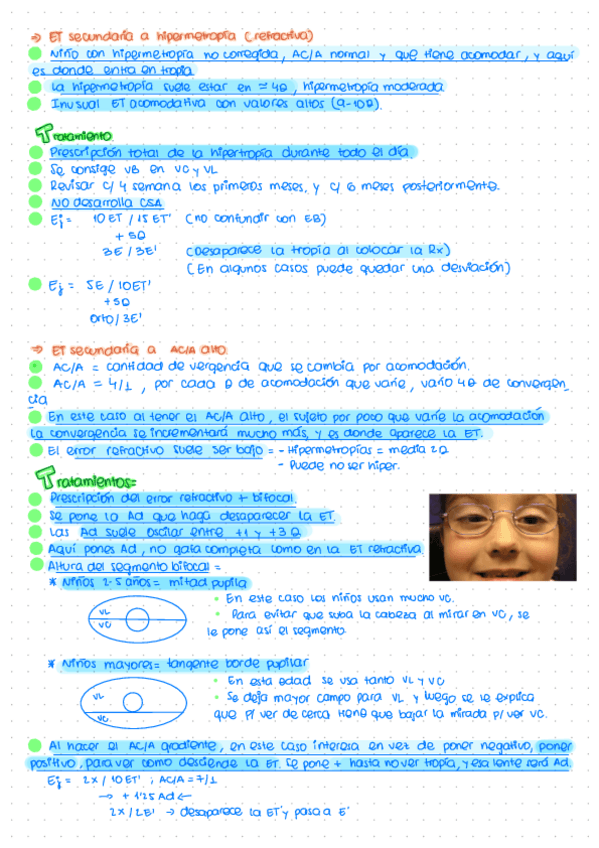 => ET secundaria a hipermetropía (refractiva)
Niño con hipermetropía no corregida, AC/A normal y que tiene acomodar, y aquí
es donde entra en tropia
La hipermetropía suele estar en ≈ 4D, hipermetropía moderada
Inusual ET acomodativa con valores altos (9-10D).
Tratamiento
Prescripción total de la hipertropía durante todo el día.
Se consige VB en VC y VL
Revisar c/ 4 semana los primeros meses, y c/ 6 meses posteriormente.
NO desarrolla CSA
Ej = 10 ET / 15 ET' (no confundir con EB)
+ 5D
3E / 3E' (Desaparece la tropia al colocar la Rx)
(En algunos casos puede quedar una desviación)
Ej = 5E / 10ET'
+5D
Orto / 3E'
=> ET secundaria a AC/A alto
AC/A = cantidad de vergencia que se cambia por acomodación.
AC/A = 4/1, por cada D de acomodación que varíe, varío 4D de convergen_
cia
En este caso al tener el AC/A alto, el sujeto por poco que varíe la acomodación
la convergencia se incrementará mucho más, y es donde aparece la ET.
El error refractivo suele ser bajo = - Hipermetropías = media 2D
- Puede no ser hiper.
Tratamientos=
Prescripción del error refractivo + bifocal.
Se pone la Ad que haga desaparecer la ET.
Las Ad suele oscilar entre +1 y +3D
Aquí pones Ad, no gafa completa como en la ET refractiva
Altura del segmento bifocal =
* Niños 2-5 años = mitad pupila
VL
VC
• En este caso los niños usan mucho VC.
• Para evitar que suba la cabeza al mirar en VC, se
le pone así el segmento.
* Niños mayores = tangente borde pupilar
VL
VC
• En esta edad se usa tanto VL y VC
• Se deja mayor campo para VL y luego se le explica
que p/ ver de cerca tiene que bajar la mirada p/ ver VC.
Al hacer el AC/A gradiente, en este caso interesa en vez de poner negativo, poner
positivo, para ver como desciende la ET. Se pone + hasta no ver tropía, y esa lente será Ad.
Ej = 2X / 10ET' ; AC/A = 7/1
→ + 1'25 Ad ←
2X / 2E' → desaparece la ET' y pasa a E'